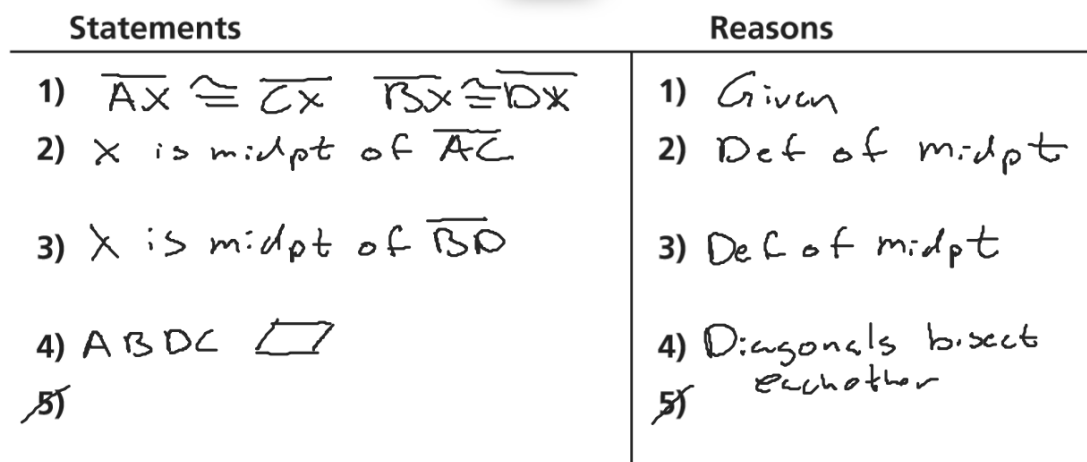 Statements Reasons
1) A̅X̅ ≅ C̅X̅ B̅X̅ ≅ D̅X̅ 1) Given
2) X is midpt of A̅C̅ 2) Def of midpt
3) X is midpt of B̅D̅ 3) Def of midpt
4) ABDC ▱ 4) Diagonals bisect
eachother
5) 5)